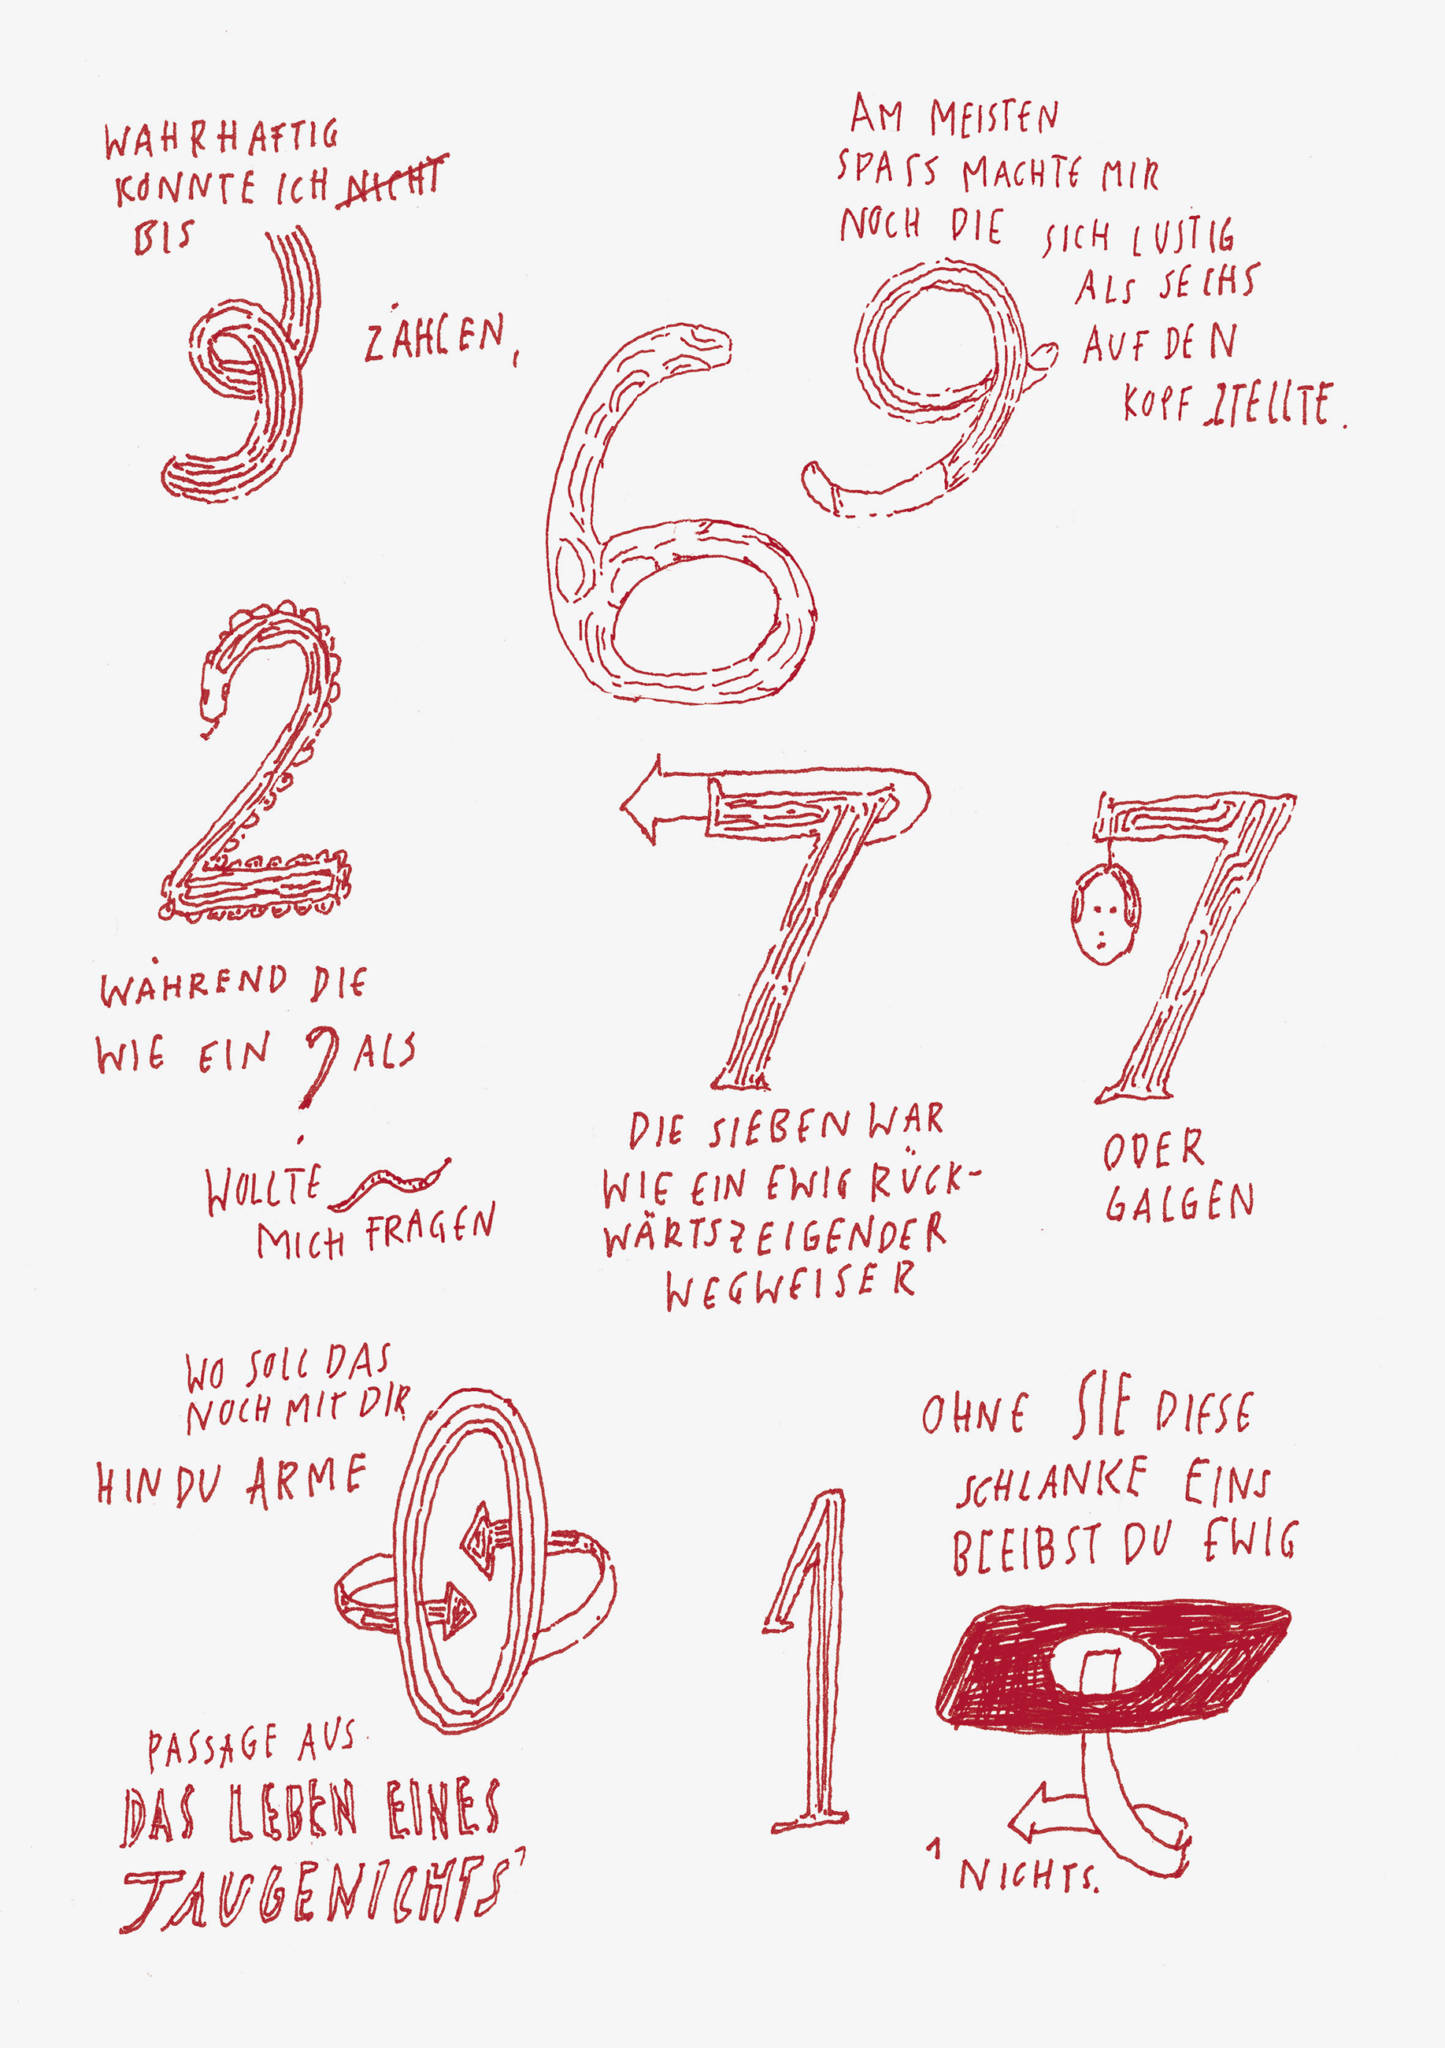 WAHRHAFTIG
KONNTE ICH NICHT
BIS
3
ZÄHLEN,
AM MEISTEN
SPASS MACHTE MIR
NOCH DIE
9
SICH LUSTIG
ALS SECHS
AUF DEN
KOPF STELLTE.
6
2
WÄHREND DIE
WIE EIN ? ALS
WOLLTE
MICH FRAGEN
7
DIE SIEBEN WAR
WIE EIN EWIG RÜCK-
WÄRTSZEIGENDER
WEGWEISER
7
ODER
GALGEN
WO SOLL DAS
NOCH MIT DIR
HIN DU ARME
0
1
OHNE SIE DIESE
SCHLANKE EINS
BLEIBST DU EWIG
1 NICHTS.
PASSAGE AUS
DAS LEBEN EINES
TAUGENICHTS1